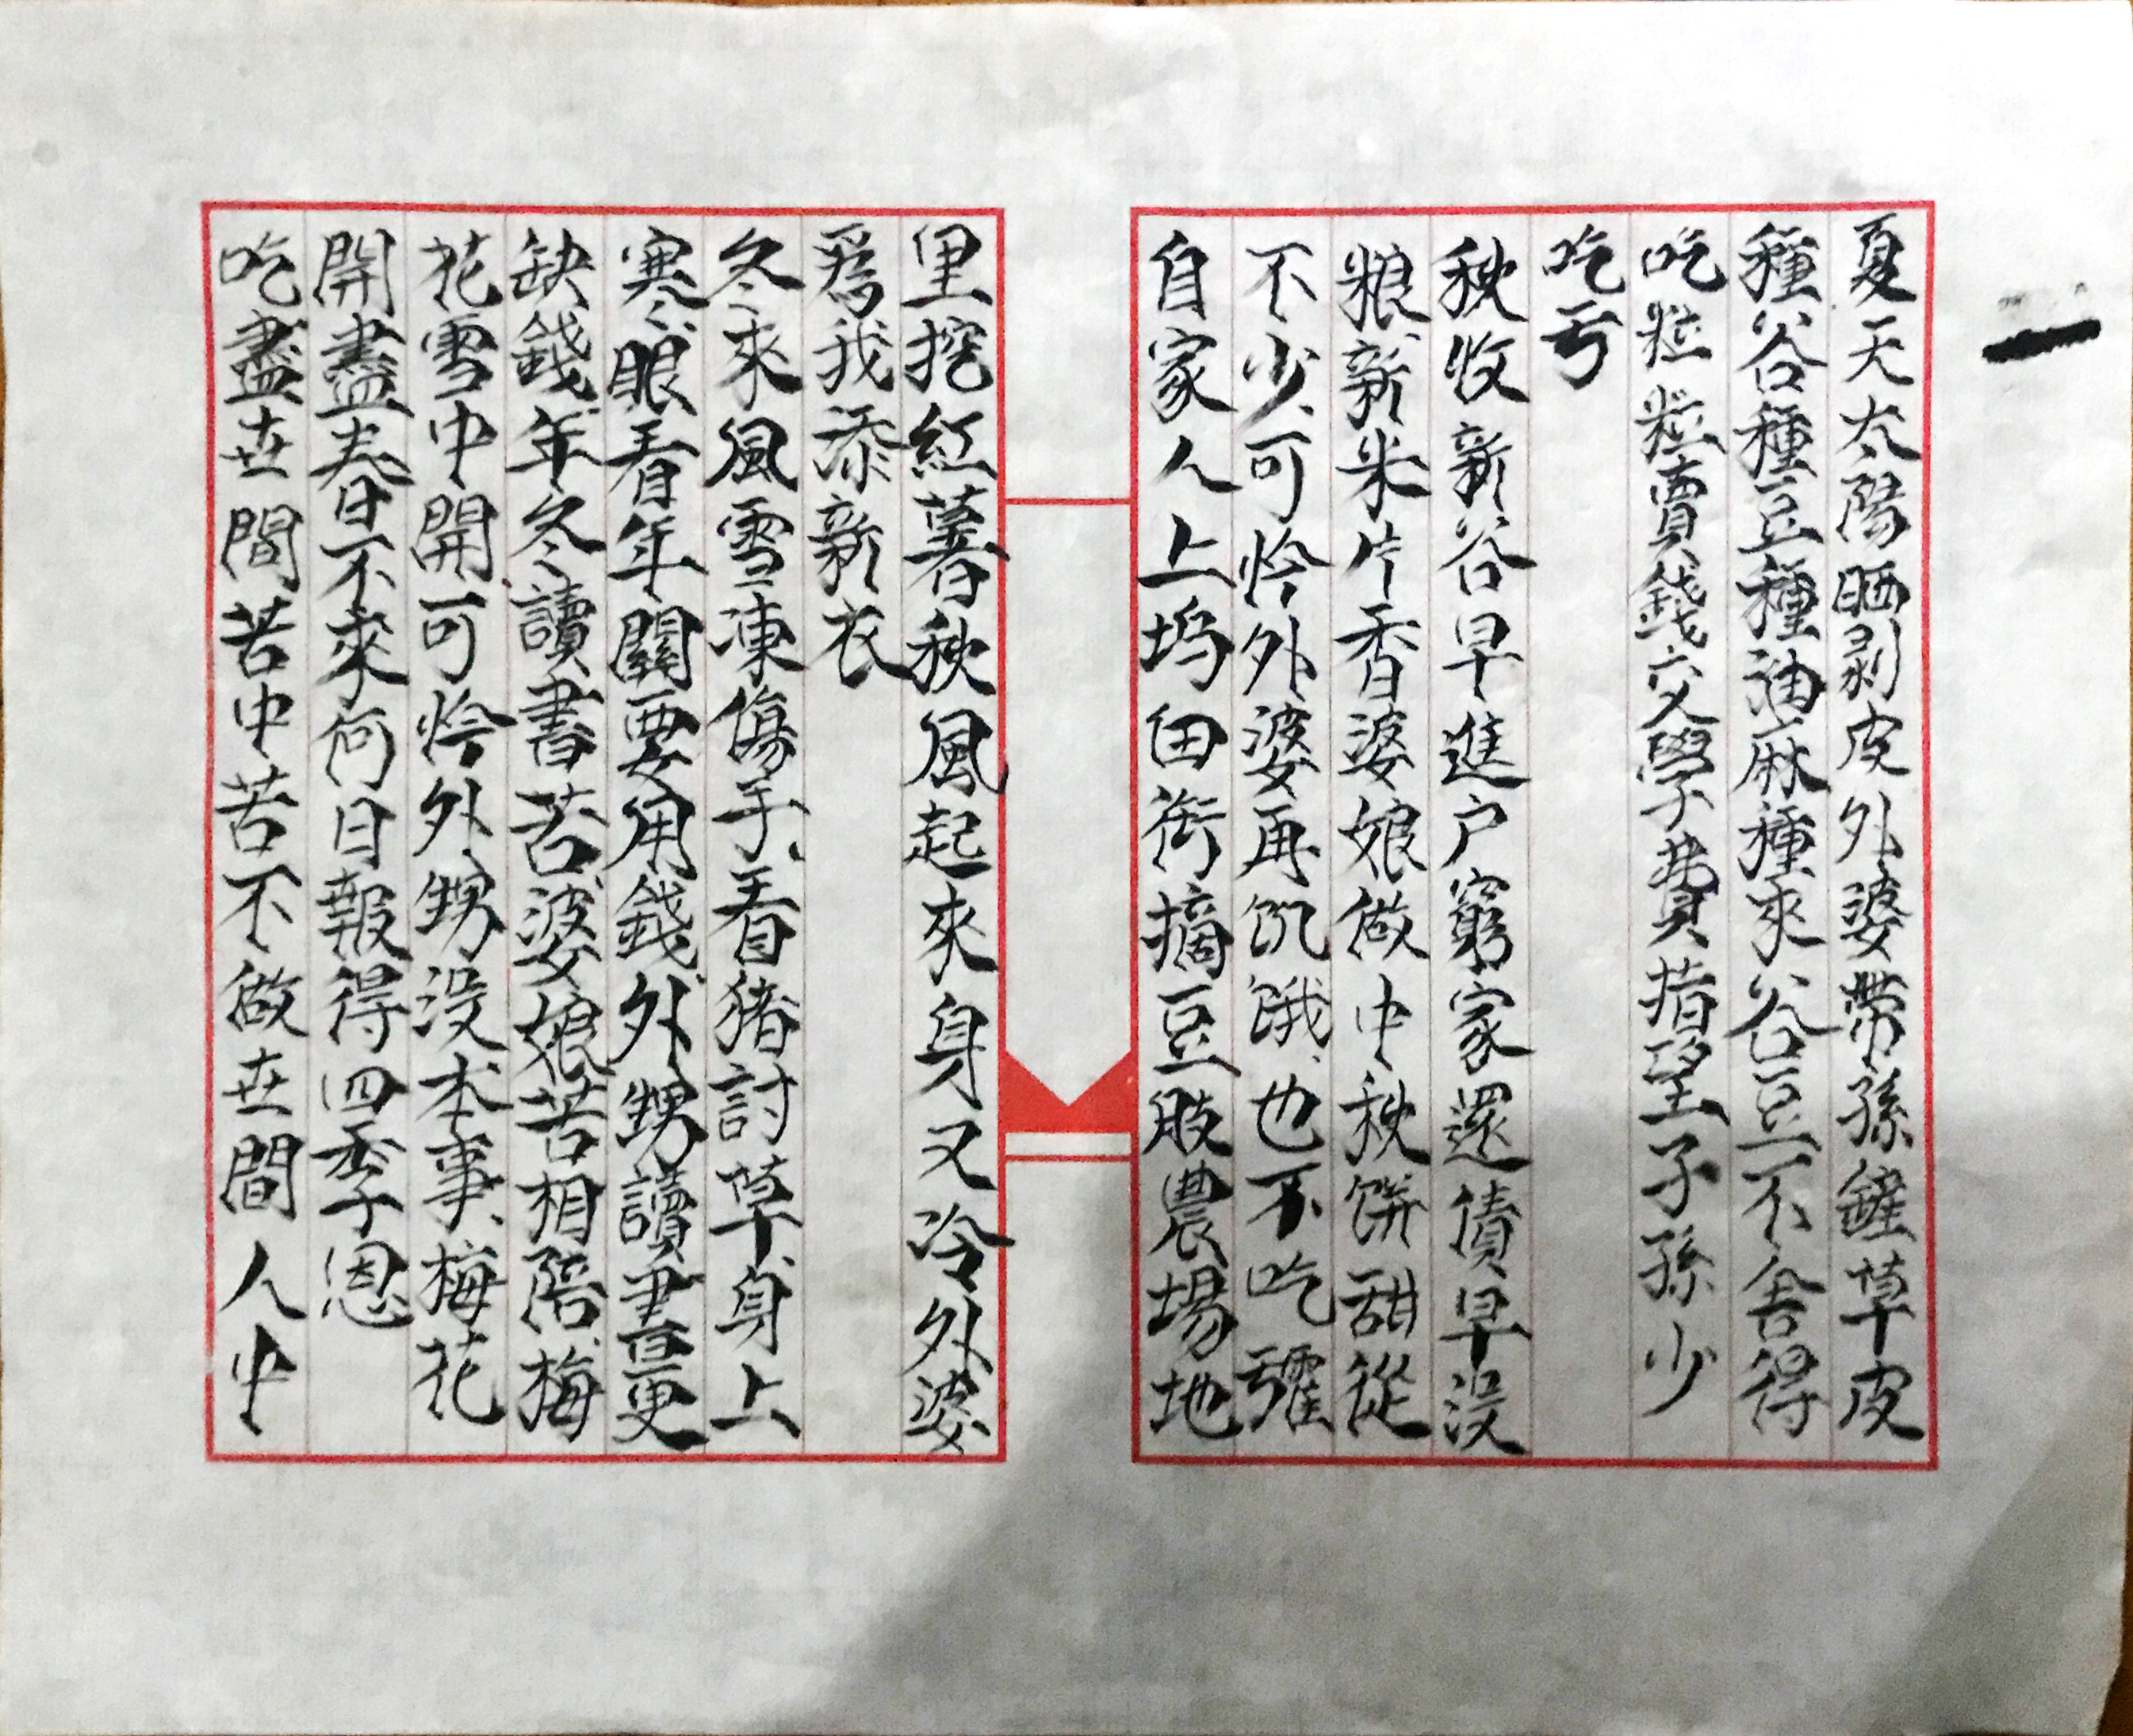 一
夏天太陽晒剥皮外婆帶孫鏟草皮
種谷種豆種油麻種來谷豆不舍得
吃粒粒賣錢交學費指望子孫少
吃亏
秋收新谷早進户窮家還債早没
粮、新米片香婆娘做中秋餅甜從
不少、可怜外婆再饥饿、也不吃
自家人上塢田衖摘豆肢農場地
里挖紅薯秋風起來身又冷外婆
爲我添新衣
冬來風雪凍傷手、看猪討草、身上
寒、眼看年關要用錢、外甥讀書更
缺錢、年冬讀書苦、婆娘苦相陪、梅
花雪中開可怜外甥没本事、梅花
開盡春日不來何日報得四季恩
吃盡世間苦中苦不做世間人中